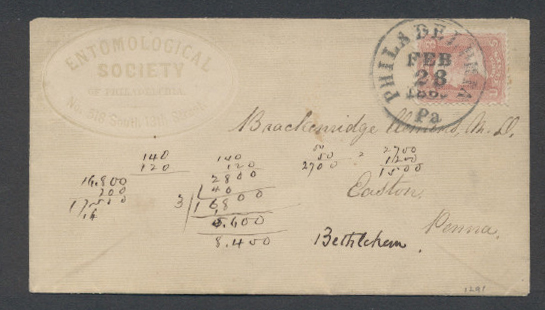 ENTOMOLOGICAL
SOCIETY
OF PHILADELPHIA.
No. 518 South 13th Street
PHILADELPHIA
FEB
28
Pa
Brackenridge Clemens, M.D.
Easton,
Penna.
Bethlehem.
140
120
16,800
200
140
120
2800
3
16,800
5,600
8,400
50
2700
2700
1200
1500
1291